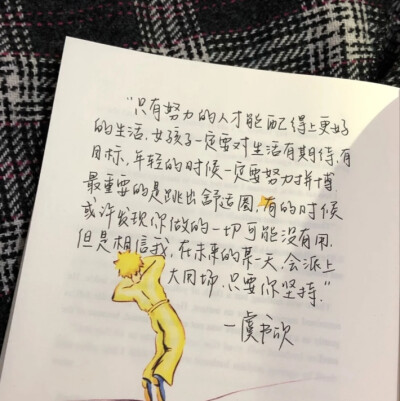 “只有努力的人才能配得上更好
的生活，女孩子一定要对生活有期待，有
目标，年轻的时候一定要努力拼博，
最重要的是跳出舒适圈，有的时候
或许发现你做的一切可能没有用，
但是相信我，在未来的某一天，会派上
大用场，只要你坚持。”
—虞书欣